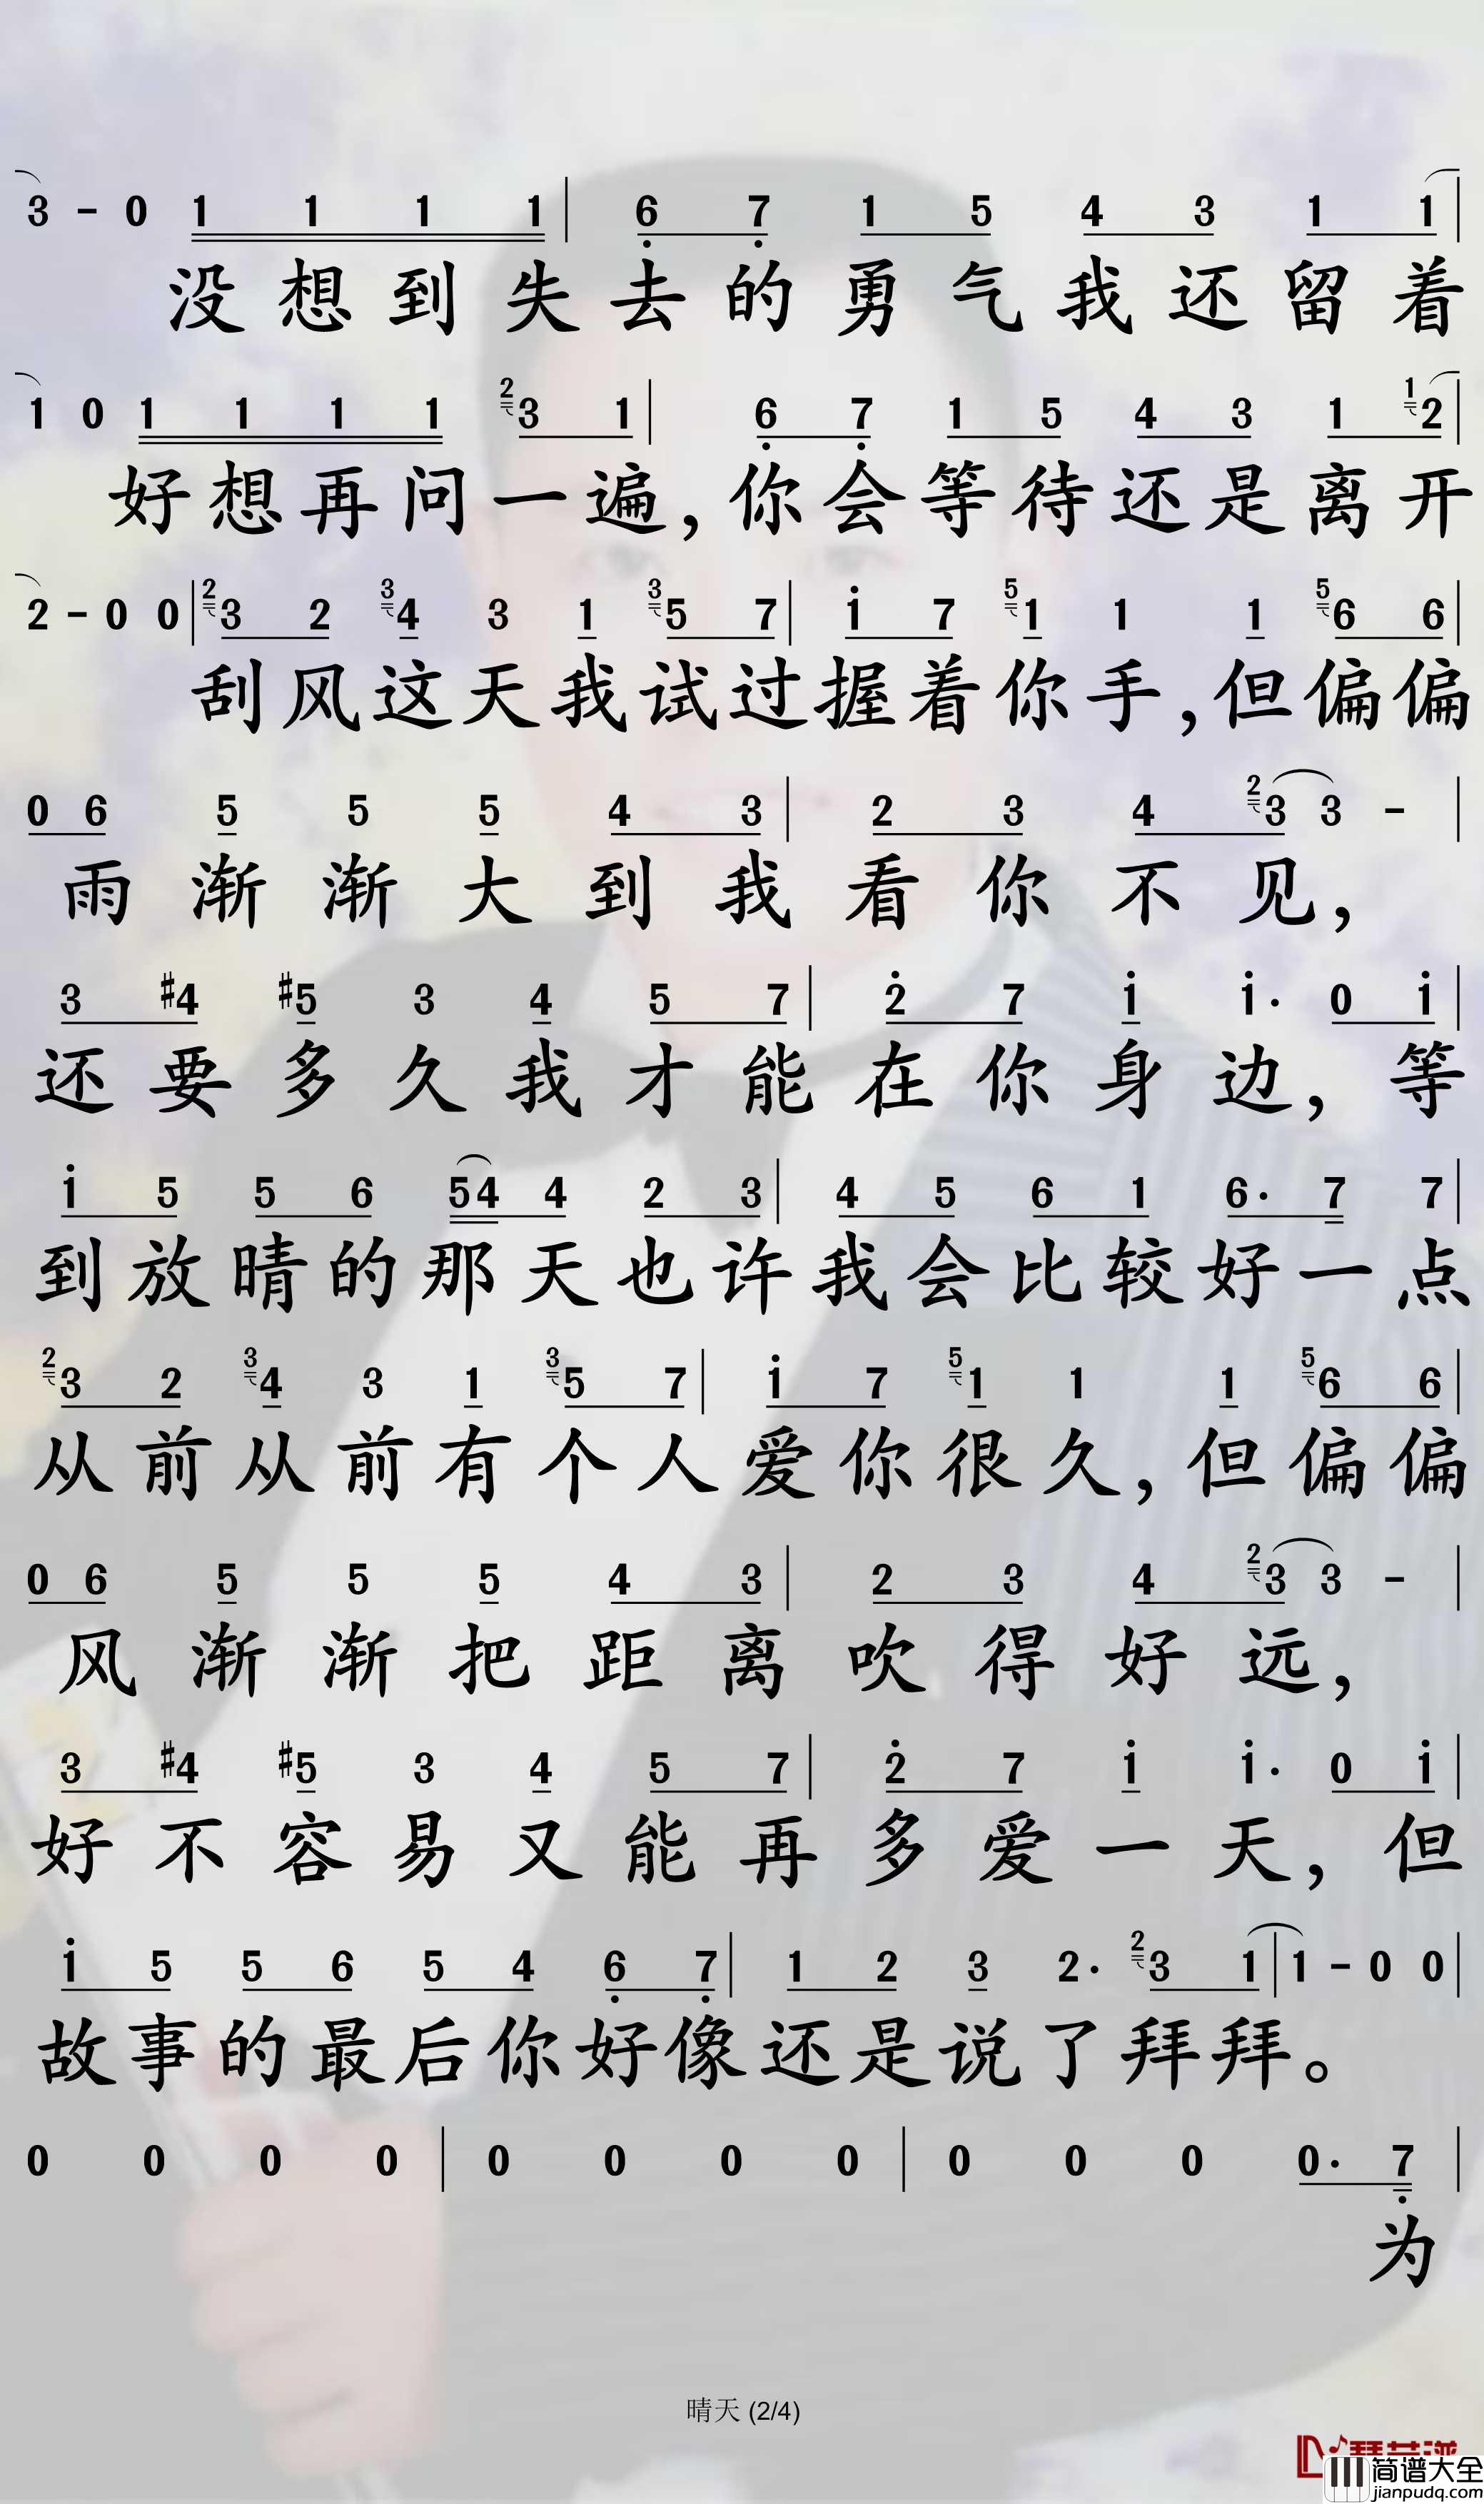 3 - 0 1 1 1 1 | 6 7 1 5 4 3 1 1 |
没想到失去的勇气我还留着
1 0 1 1 1 1 2 3 1 | 6 7 1 5 4 3 1 1 2 |
好想再问一遍,你会等待还是离开
2 - 0 0 | 2 3 2 3 4 3 1 3 5 7 | i 7 5 1 1 1 5 6 6 |
刮风这天我试过握着你手,但偏偏
0 6 5 5 5 4 3 | 2 3 4 2 3 3 - |
雨渐渐大到我看你不见,
3 #4 #5 3 4 5 7 | 2 7 i i· 0 i |
还要多久我才能在你身边,等
i 5 5 6 54 4 2 3 | 4 5 6 1 6· 7 7 |
到放晴的那天也许我会比较好一点
2 3 2 3 4 3 1 3 5 7 | i 7 5 1 1 1 5 6 6 |
从前从前有个人爱你很久,但偏偏
0 6 5 5 5 4 3 | 2 3 4 2 3 3 - |
风渐渐把距离吹得好远,
3 #4 #5 3 4 5 7 | 2 7 i i· 0 i |
好不容易又能再多爱一天,但
i 5 5 6 5 4 6 7 | 1 2 3 2· 2 3 1 | 1 - 0 0 |
故事的最后你好像还是说了拜拜。
0 0 0 0 | 0 0 0 0 | 0 0 0 0· 7 |
为
晴天 (2/4)
简谱大全
jianpudq.com